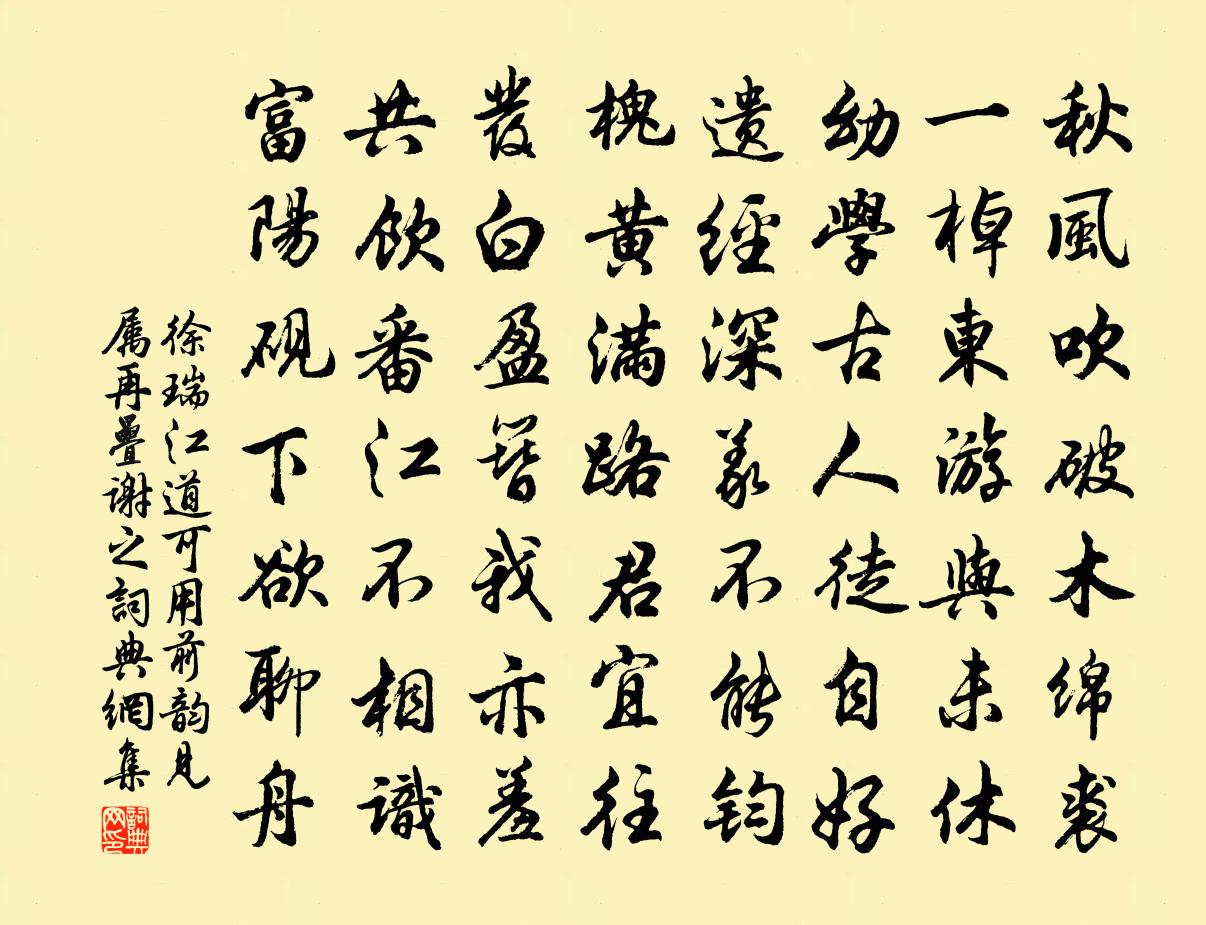 秋風吹破木綿裘
一棹東游興未休
幼學古人徒自好
遺經深義不能鈎
槐黃滿路君宜往
髮白盈簪我亦羞
共飲番江不相識
富陽硯下欲聊舟
徐瑞江道可用前韵見
屬再疊謝之詞典網集
詞典
网印